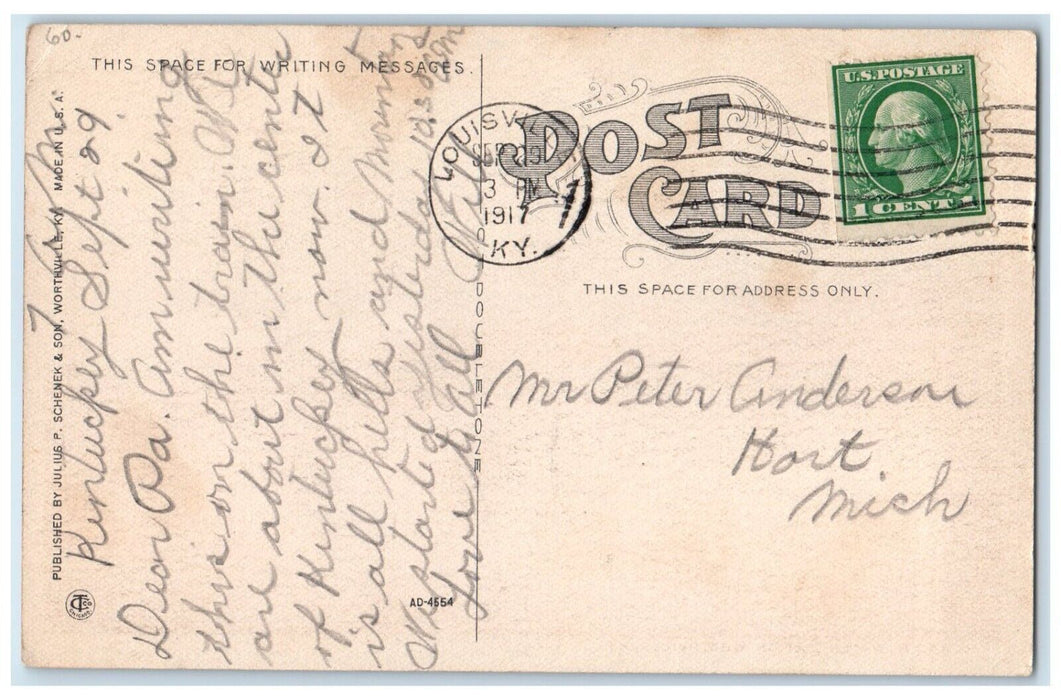 60.
THIS SPACE FOR WRITING MESSAGES.
POST CARD
LOUISV
SEP 29
3 PM
1917
KY.
U.S. POSTAGE
1 CENT
THIS SPACE FOR ADDRESS ONLY.
Mr Peter Anderson
Hart.
Mich
PUBLISHED BY JULIUS P. SCHENEK & SON, WORTHVILLE, KY. MADE IN U.S.A.
Kentuckey Sept 29
Dear Pa. Am writing
this on the train. We
are about in the center
of Kentuckey now. It
is all hills and mountains
We started yesterday
Love to all
DOUBLETONE
AD-4554
CHICAGO